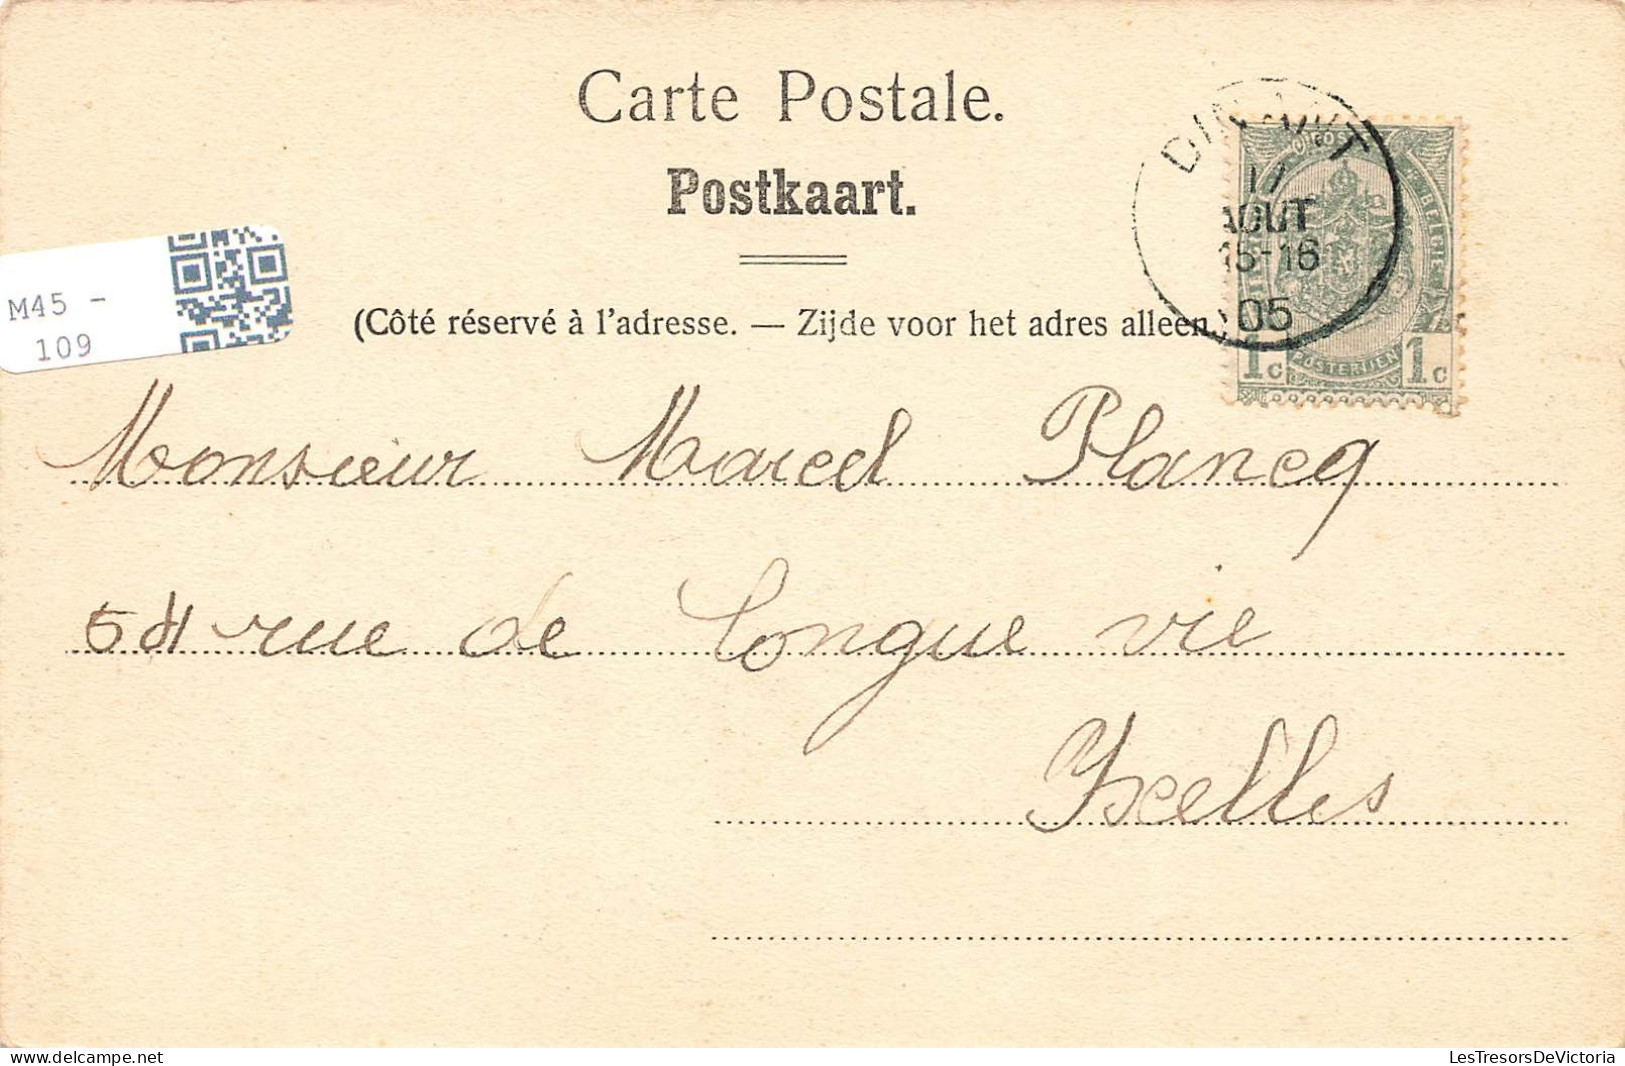 Carte Postale.
Postkaart.
DINANT
17
AOUT
15-16
05
M45 -
109
(Côté réservé à l'adresse. — Zijde voor het adres alleen.)
POSTERIJEN
1c 1c
Monsieur Marcel Plancq
54 rue de Longue vie
Ixelles
delcampe.net
LesTresorsDeVictoria